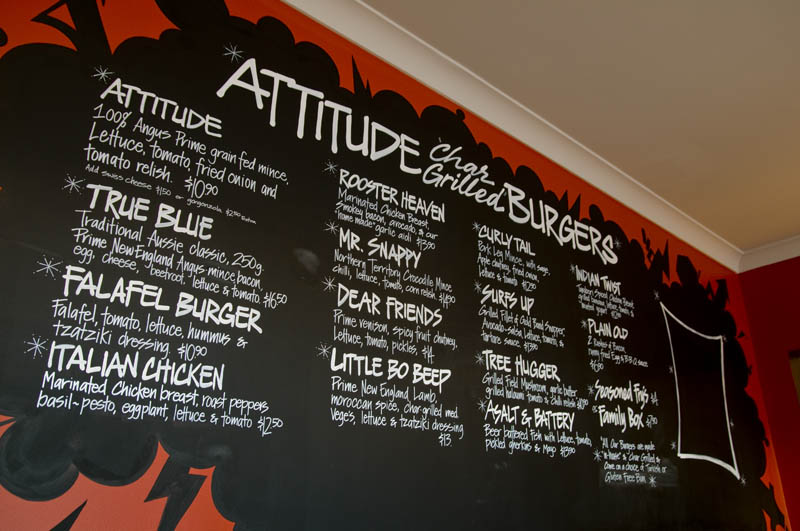 ATTITUDE Char Grilled BURGERS
ATTITUDE
100% Angus Prime grain fed mince,
Lettuce, tomato, fried onion and
tomato relish. $10.90
Add swiss cheese $1.50 or gorgonzola $2.50 extra
TRUE BLUE
Traditional Aussie classic, 250g.
Prime New England Angus mince, bacon,
egg, cheese, beetroot, lettuce & tomato. $16.50
FALAFEL BURGER
Falafel, tomato, lettuce, hummus &
tzatziki dressing. $10.90
ITALIAN CHICKEN
Marinated Chicken breast, roast peppers,
basil-pesto, eggplant, lettuce & tomato $12.50
ROOSTER HEAVEN
Marinated Chicken Breast,
Smokey bacon, avocado, & our
"home made" garlic aioli $13.90
MR. SNAPPY
Northern Territory Crocodile Mince
chilli, lettuce, tomato, corn relish $14.90
DEAR FRIENDS
Prime venison, spicy fruit chutney,
Lettuce, tomato, pickles, $14
LITTLE BO BEEP
Prime New England Lamb,
moroccan spice, char grilled med
Vege's, lettuce & tzatziki dressing
$13.
CURLY TAIL
Pork Leg Mince, with sage,
Apple chutney, fried onion,
Lettuce & tomato
SURFS UP
Grilled Fillet of Gold Band Snapper,
Avocado-salsa, Lettuce, tomato,
tartare sauce
TREE HUGGER
Grilled Field Mushroom, garlic butter
grilled haloumi tomato & chilli relish
ASALT & BATTERY
Beer battered Fish with Lettuce, tomato,
pickled gherkins & Mayo $13.90
INDIAN TWIST
Tandoori Spiced Chicken Breast,
PLAIN OLD
2 Rashers of Bacon,
Seasoned Frys
Family Box
"All Our Burgers are made
"in-house" & Char Grilled &
Come on a choice of Turkish or
Gluten Free Bun.